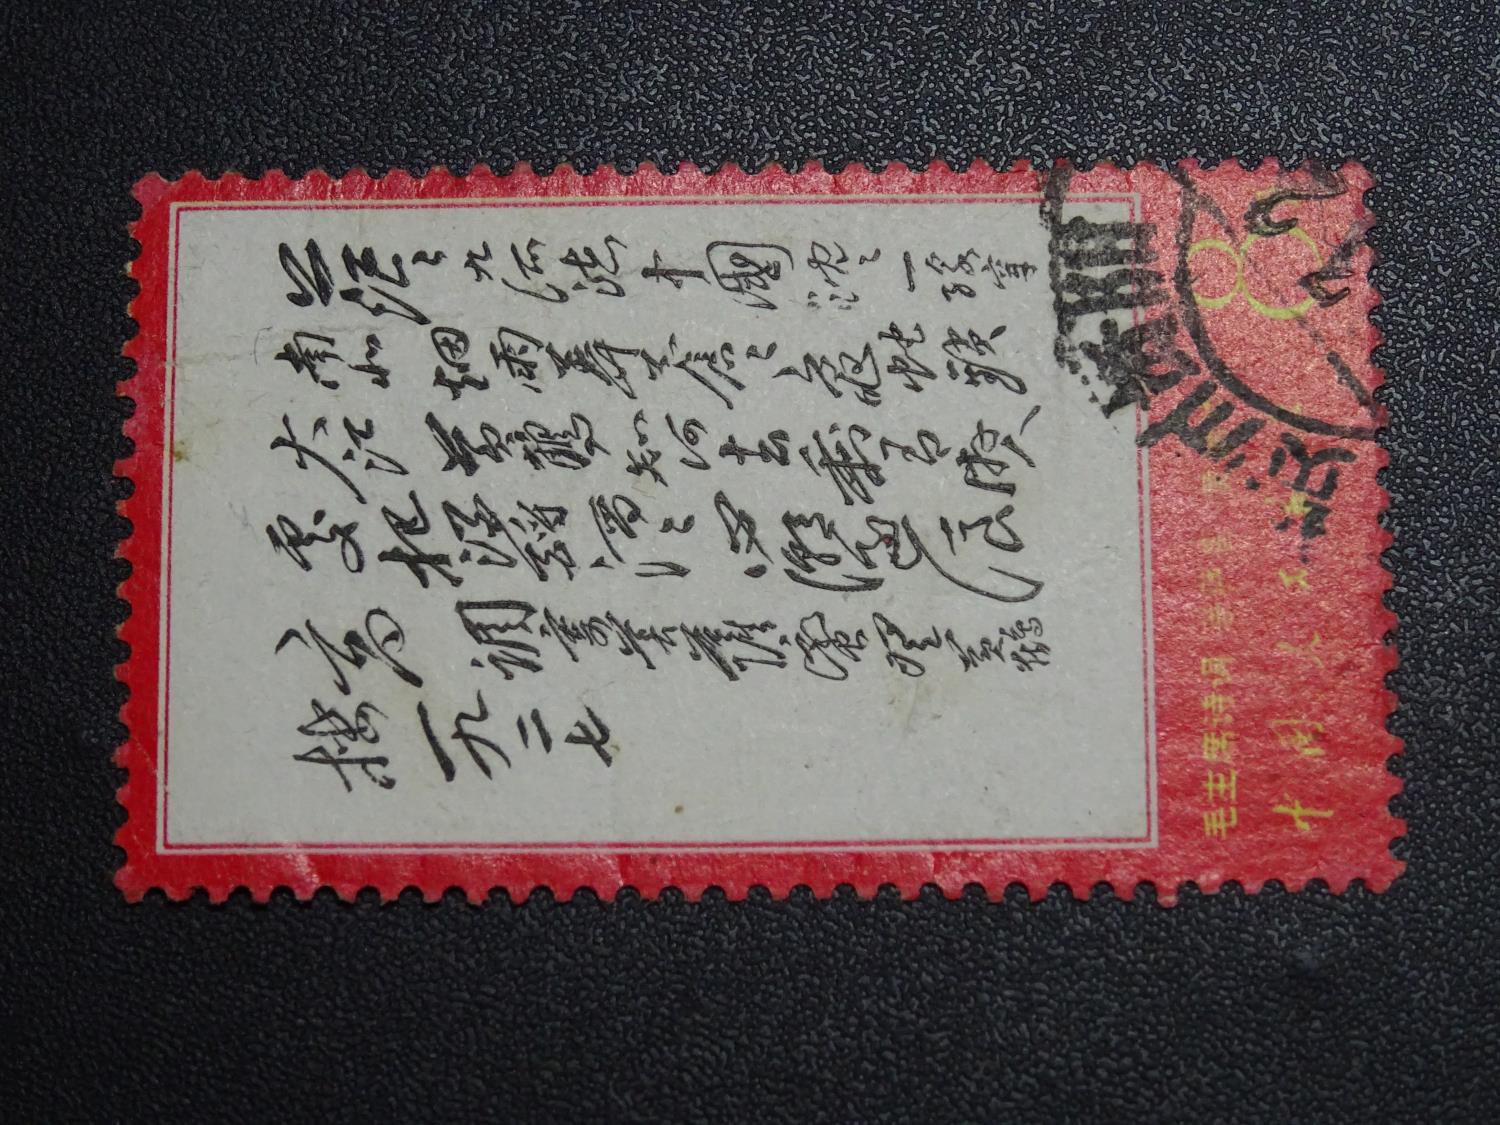 茫茫九派流中國沉沉一线穿
南北烟雨莽苍苍龟蛇锁
大江黄鹤知何去剩有游人
处把酒酹滔滔心潮逐浪
高调寄菩萨蛮登黄鹤
楼一九二七
8
毛主席诗词
中国人民